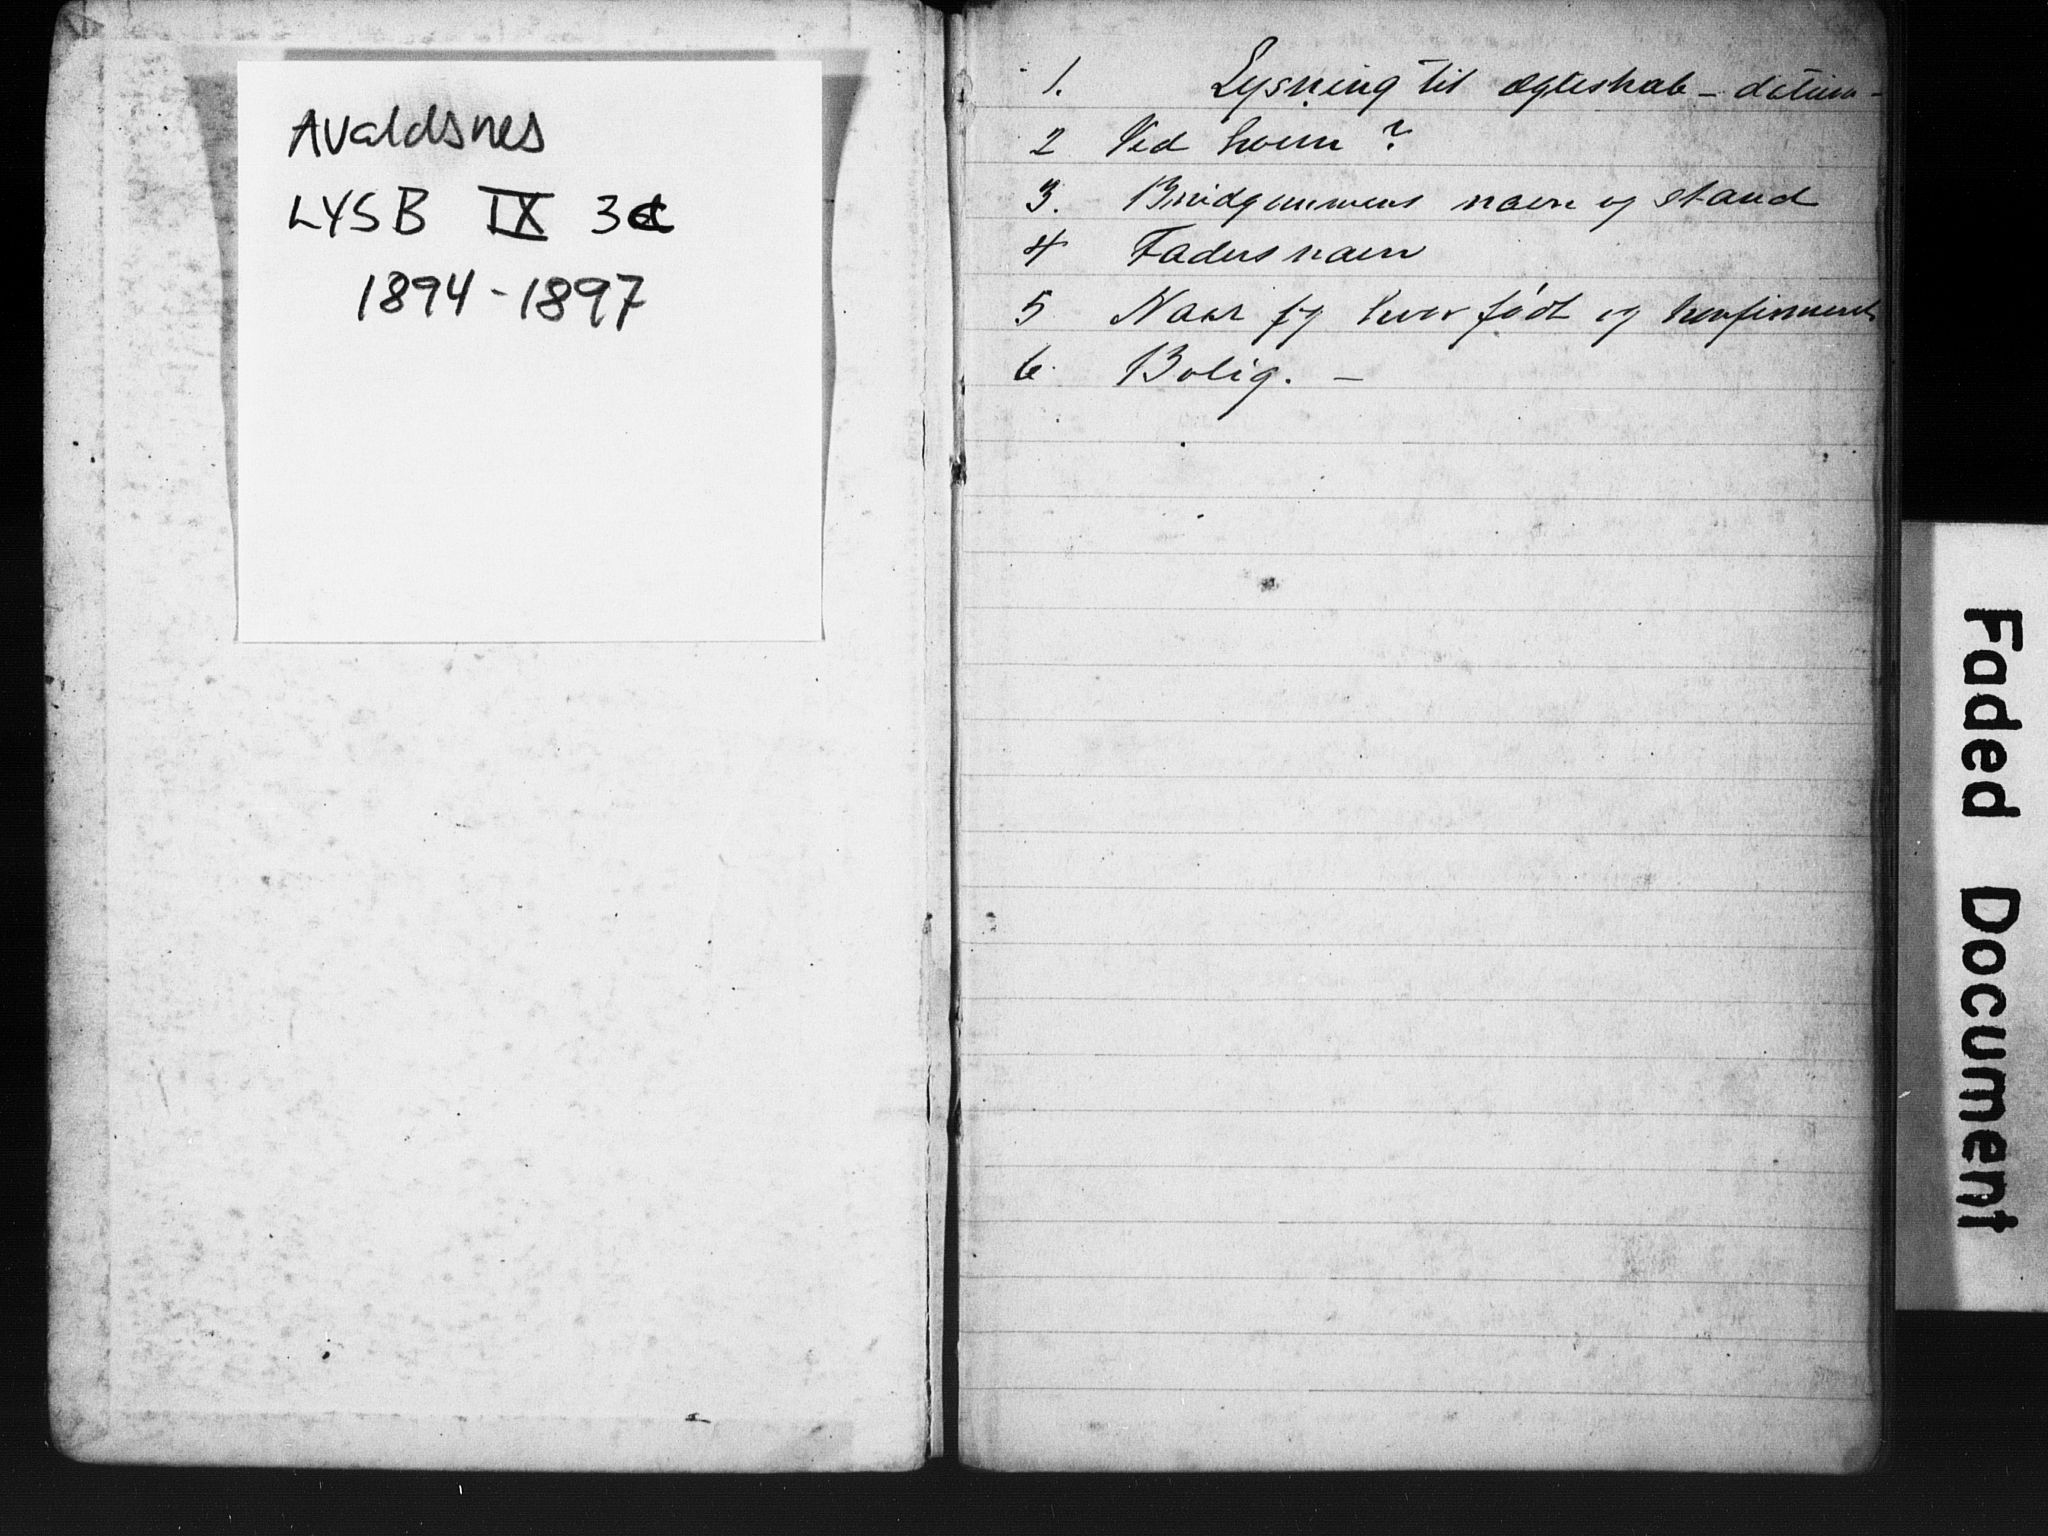 Avaldsnes
LYSB IX 3
1894-1897
1. Lysning til ægteskab - datum -
2 Ved hvem ?
3. Brudgummens navn og stand
4 Faders navn
5 Naar og hvor født og konfirmeret
6. Bolig. -
Faded Document